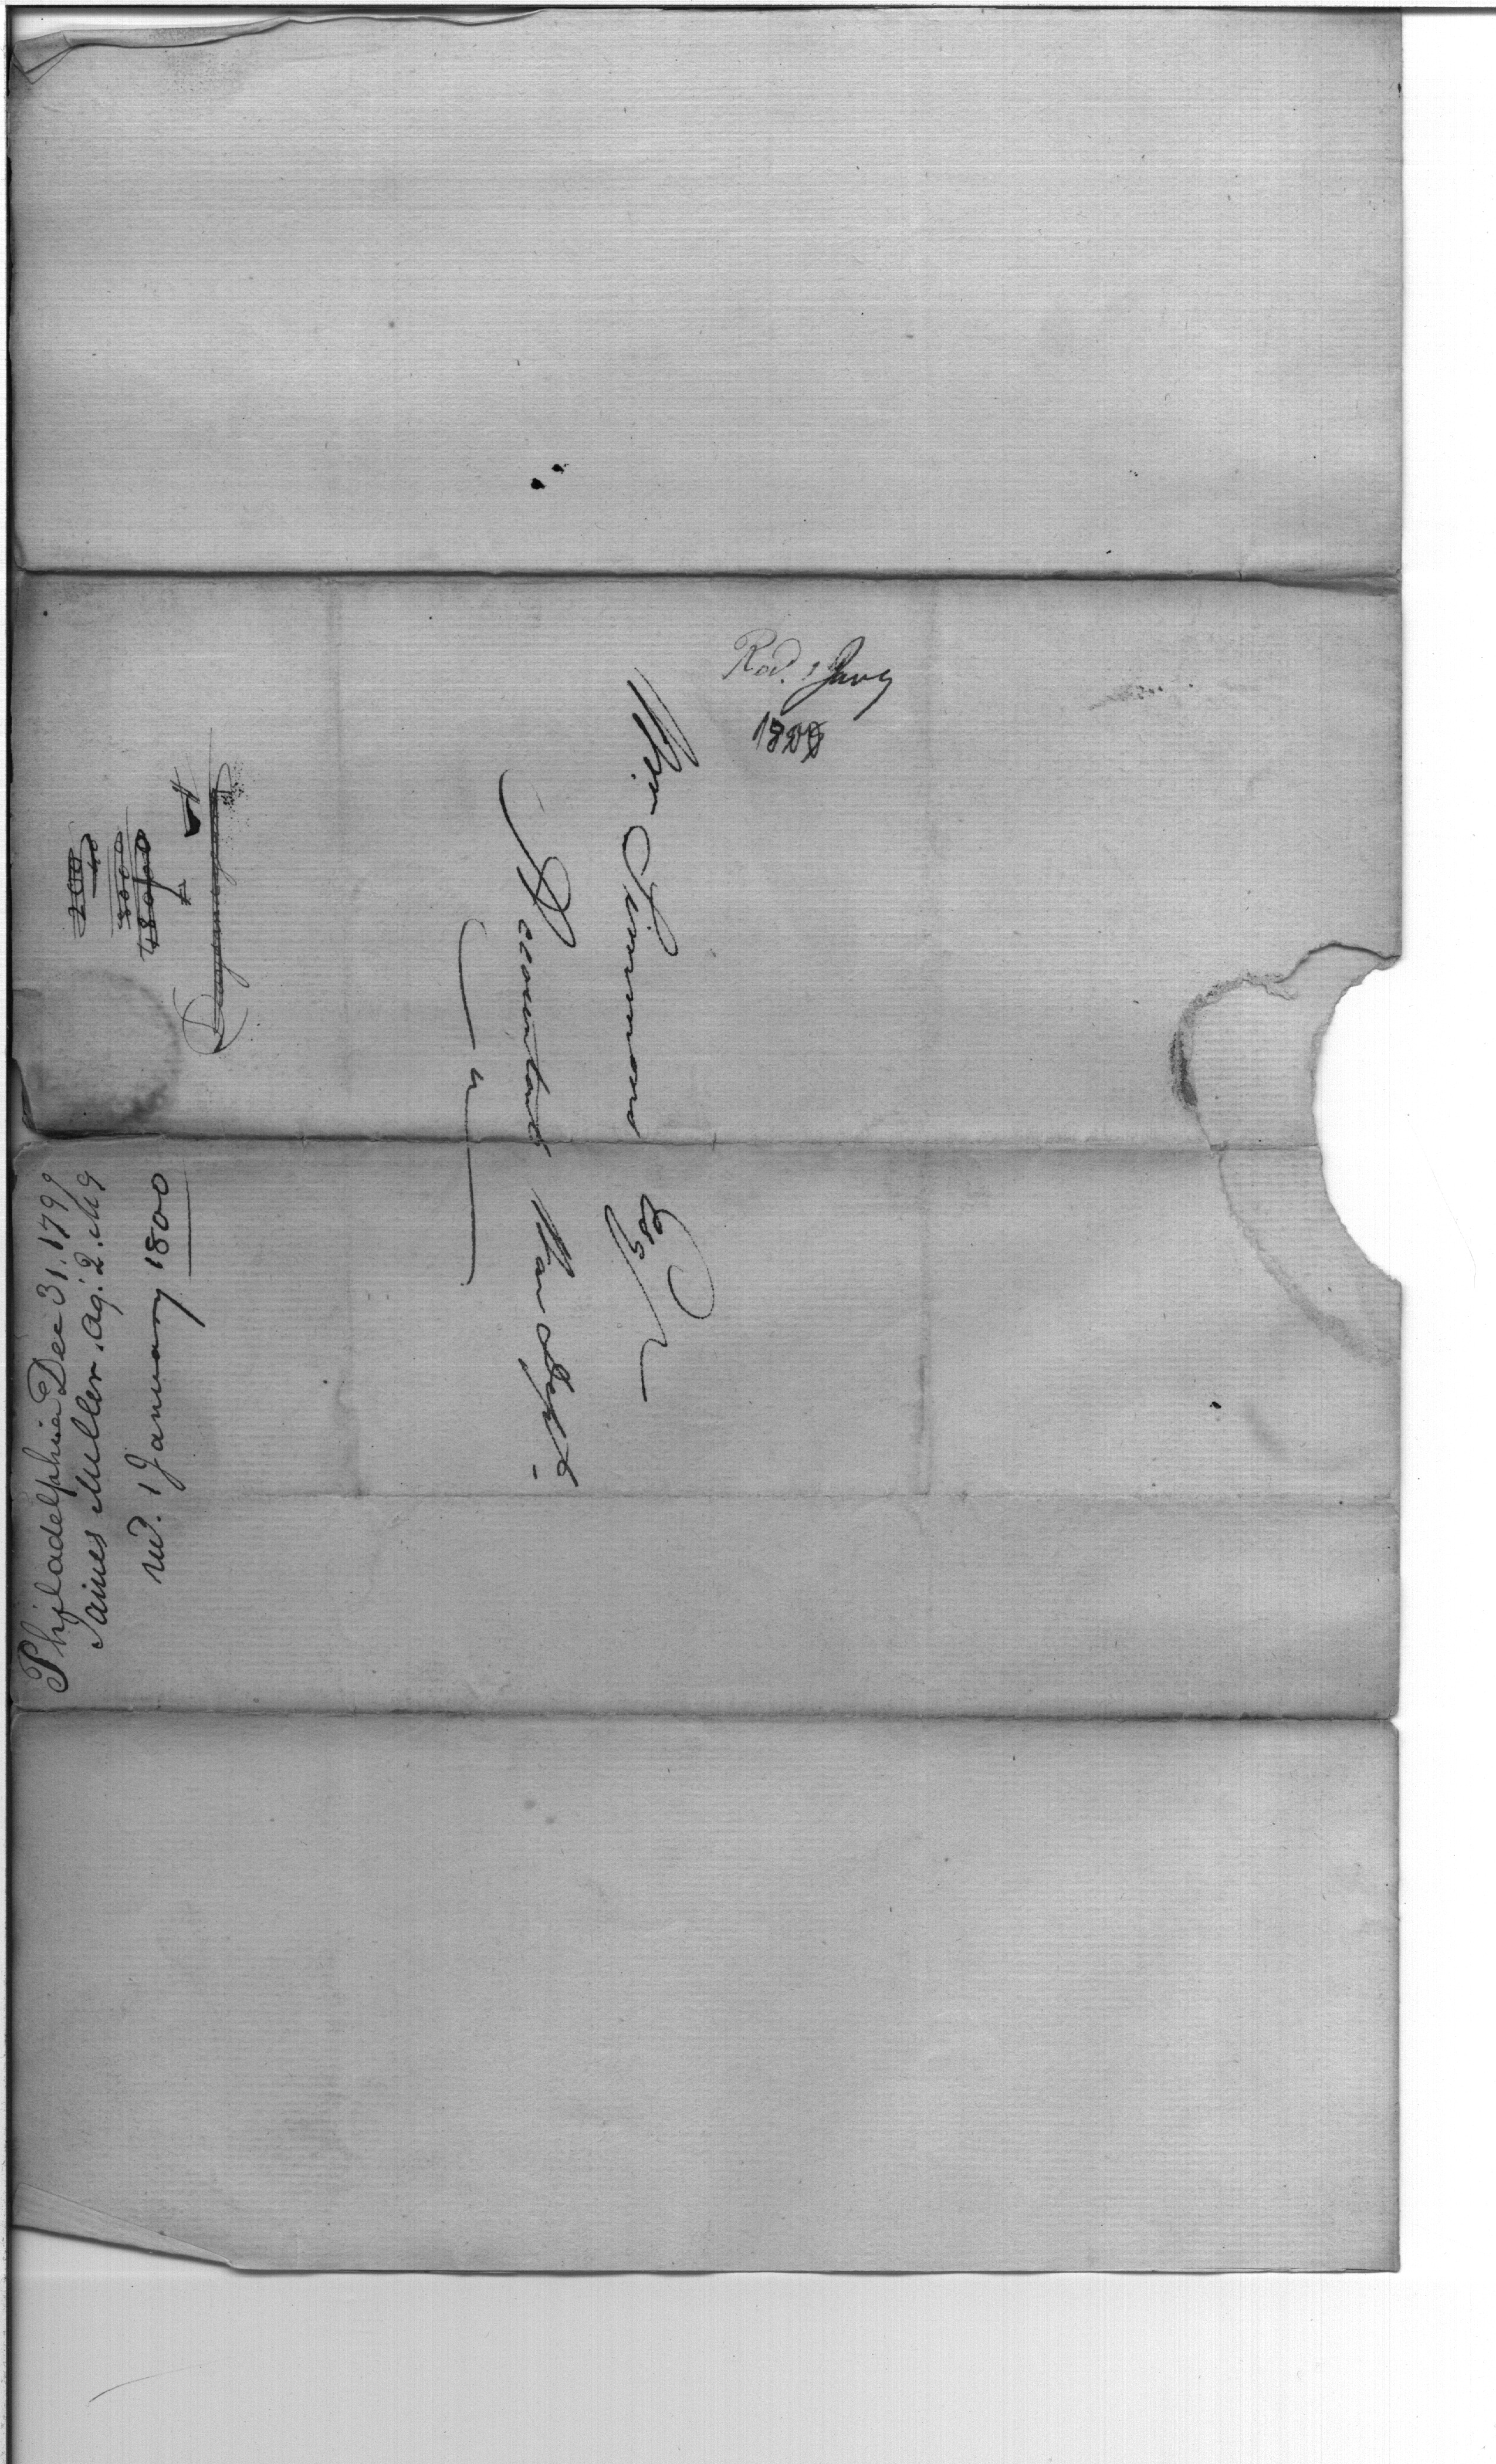 Recd. 1 Jany
1800
Wm. Simmons Esqr
Accountant War Dept.
Philadelphia Dec 31. 1799
James Miller. Ag. 2. M G
recd. 1 January 1800
200
40
8000